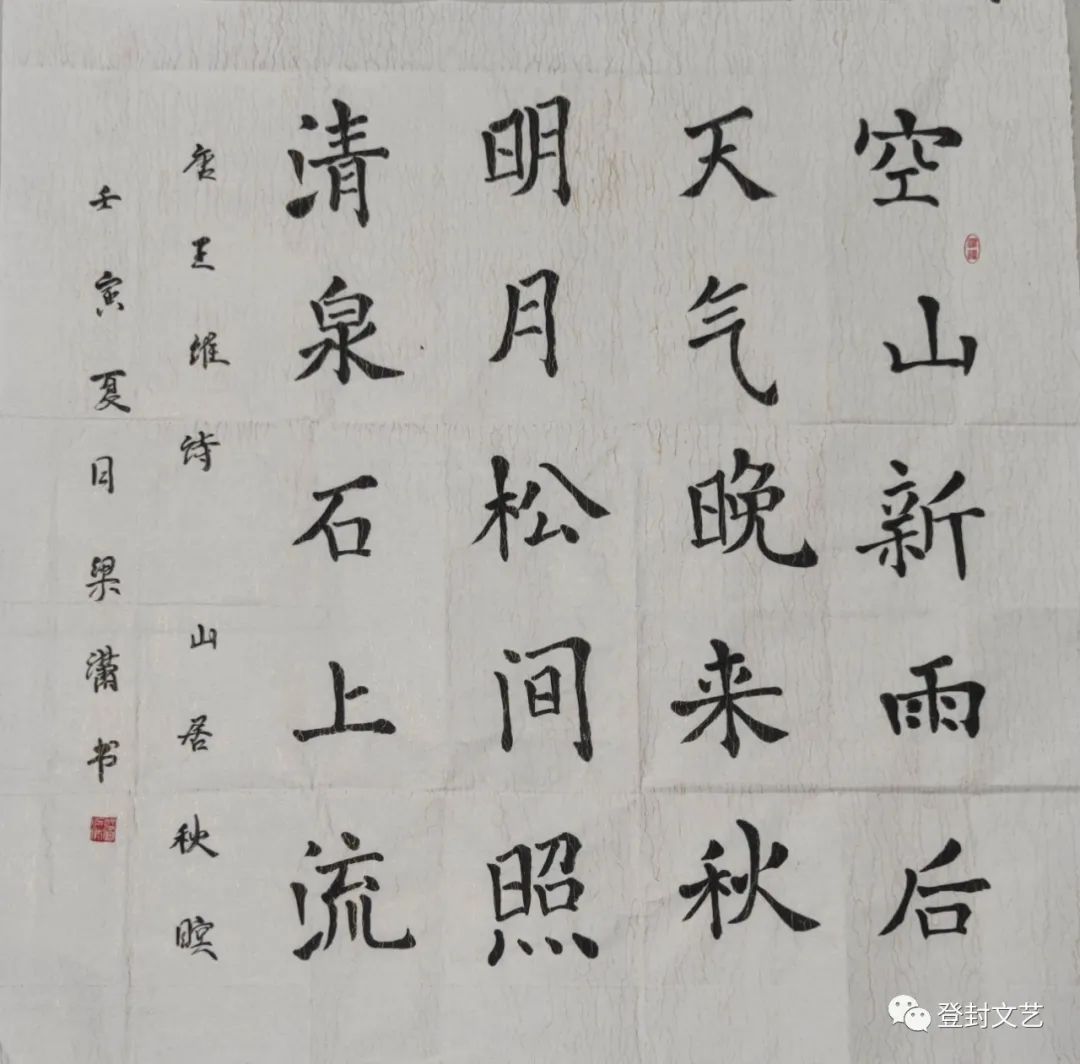 空山新雨后
天气晚来秋
明月松间照
清泉石上流
唐王维诗 山居秋暝
壬寅夏月梁潇书
登封文艺